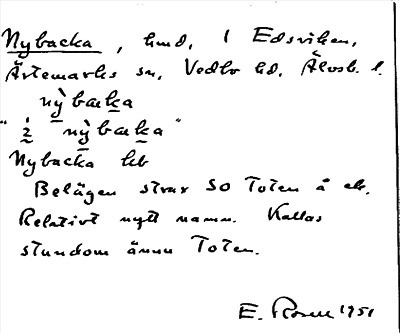 Nybacka, hmd, i Edsviken,
Ärtemarks sn, Vedbo hd, Älvsb. l.
nỳbaka
"i nỳbaka"
Nybacka hb
Belägen strax SO Toten å ek.
Relativt nytt namn. Kallas
stundom ännu Toten.
E. Rosell 1951